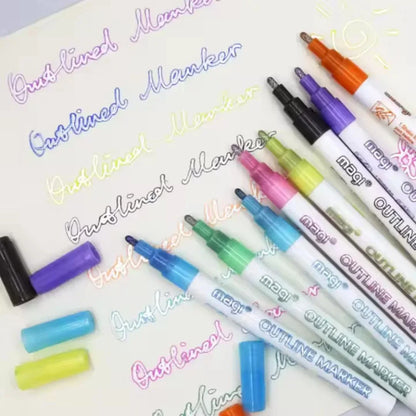 Outlined Marker
Outlined Marker
Outlined Marker
Outlined Marker
Outlined Marker
Outlined Marker
Outlined Marker
Outlined Marker
magi
OUTLINE MARKER
magi
OUTLINE MARKER
magi
OUTLINE MARKER
magi
OUTLINE MARKER
OUTLINE
magi
OUTLINE
magi
OUTLINE